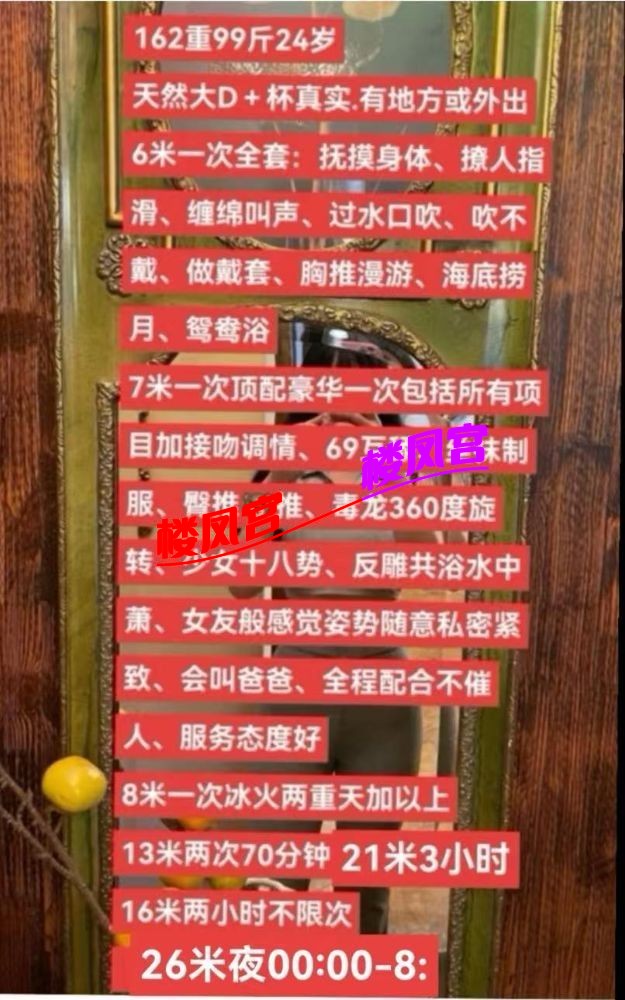 162重99斤24岁
天然大D+杯真实.有地方或外出
6米一次全套：抚摸身体、撩人指
滑、缠绵叫声、过水口吹、吹不
戴、做戴套、胸推漫游、海底捞
月、鸳鸯浴
7米一次顶配豪华一次包括所有项
目加接吻调情、69 袜制
楼凤宫
服、臀推 推、毒龙360度旋
楼凤宫
转、少女十八势、反雕共浴水中
萧、女友般感觉姿势随意私密紧
致、会叫爸爸、全程配合不催
人、服务态度好
8米一次冰火两重天加以上
13米两次70分钟 21米3小时
16米两小时不限次
26米夜00:00-8: